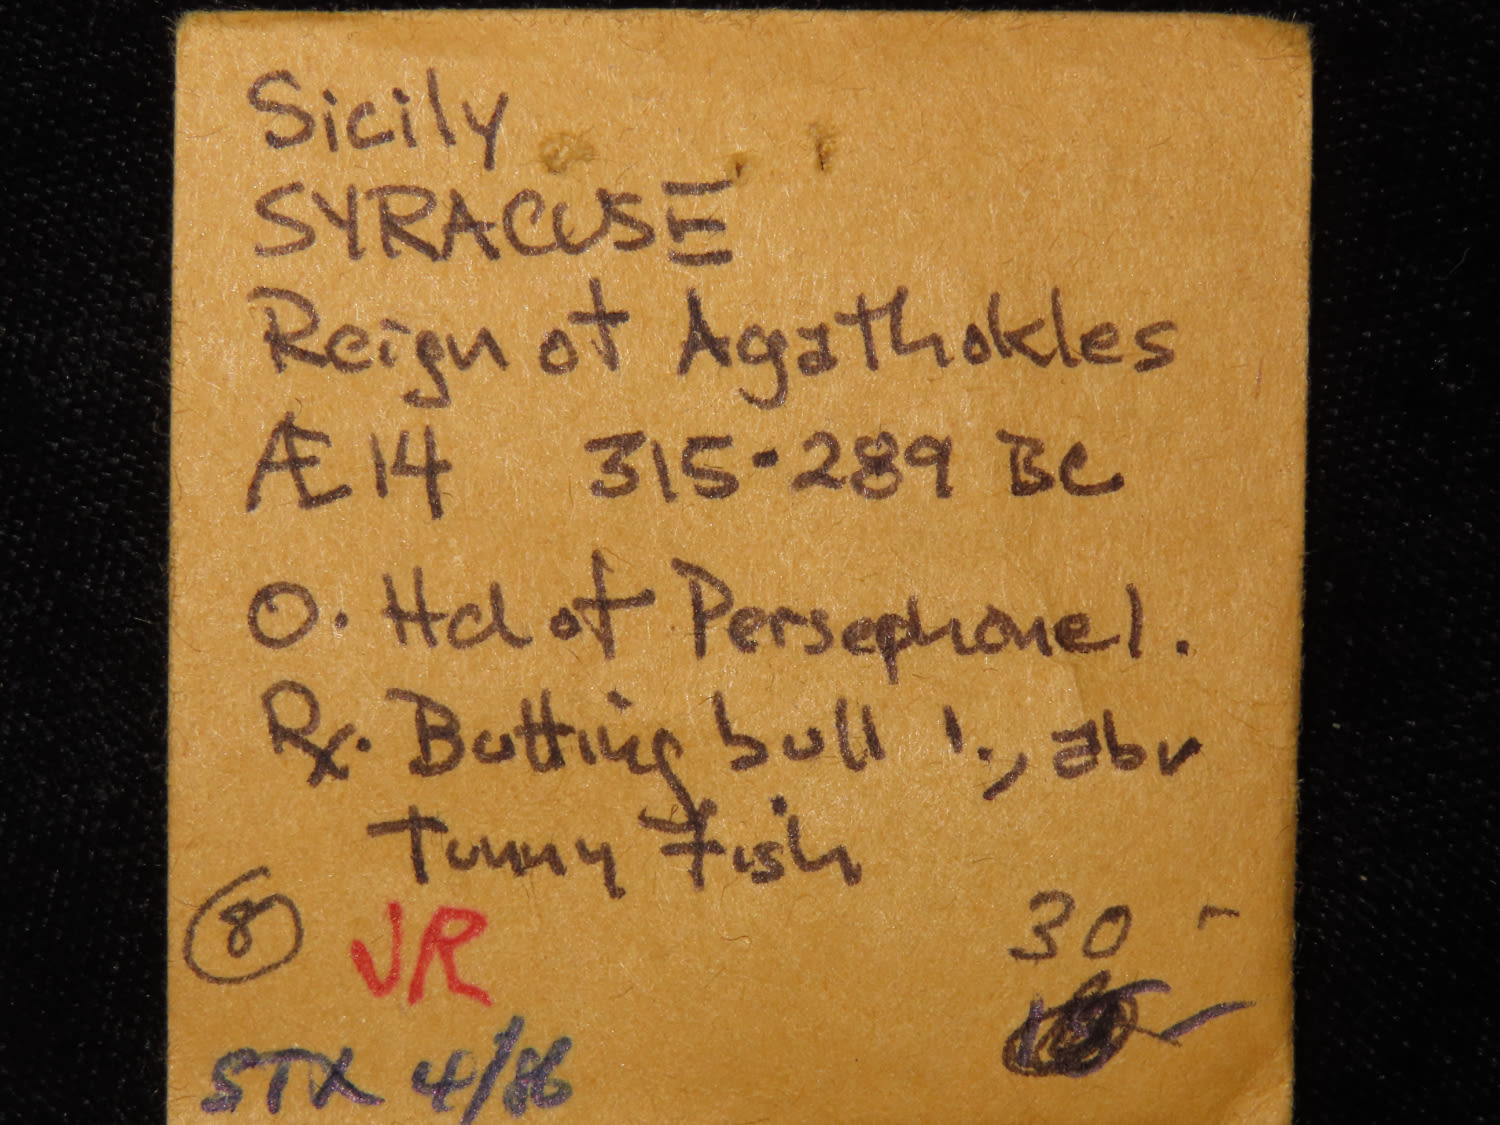 Sicily
SYRACUSE
Reign of Agathokles
Æ 14 315-289 BC
O. Hd of Persephone l.
Rx. Butting bull l., abv
Tunny Fish
8 JR 30 -
STX 4/86